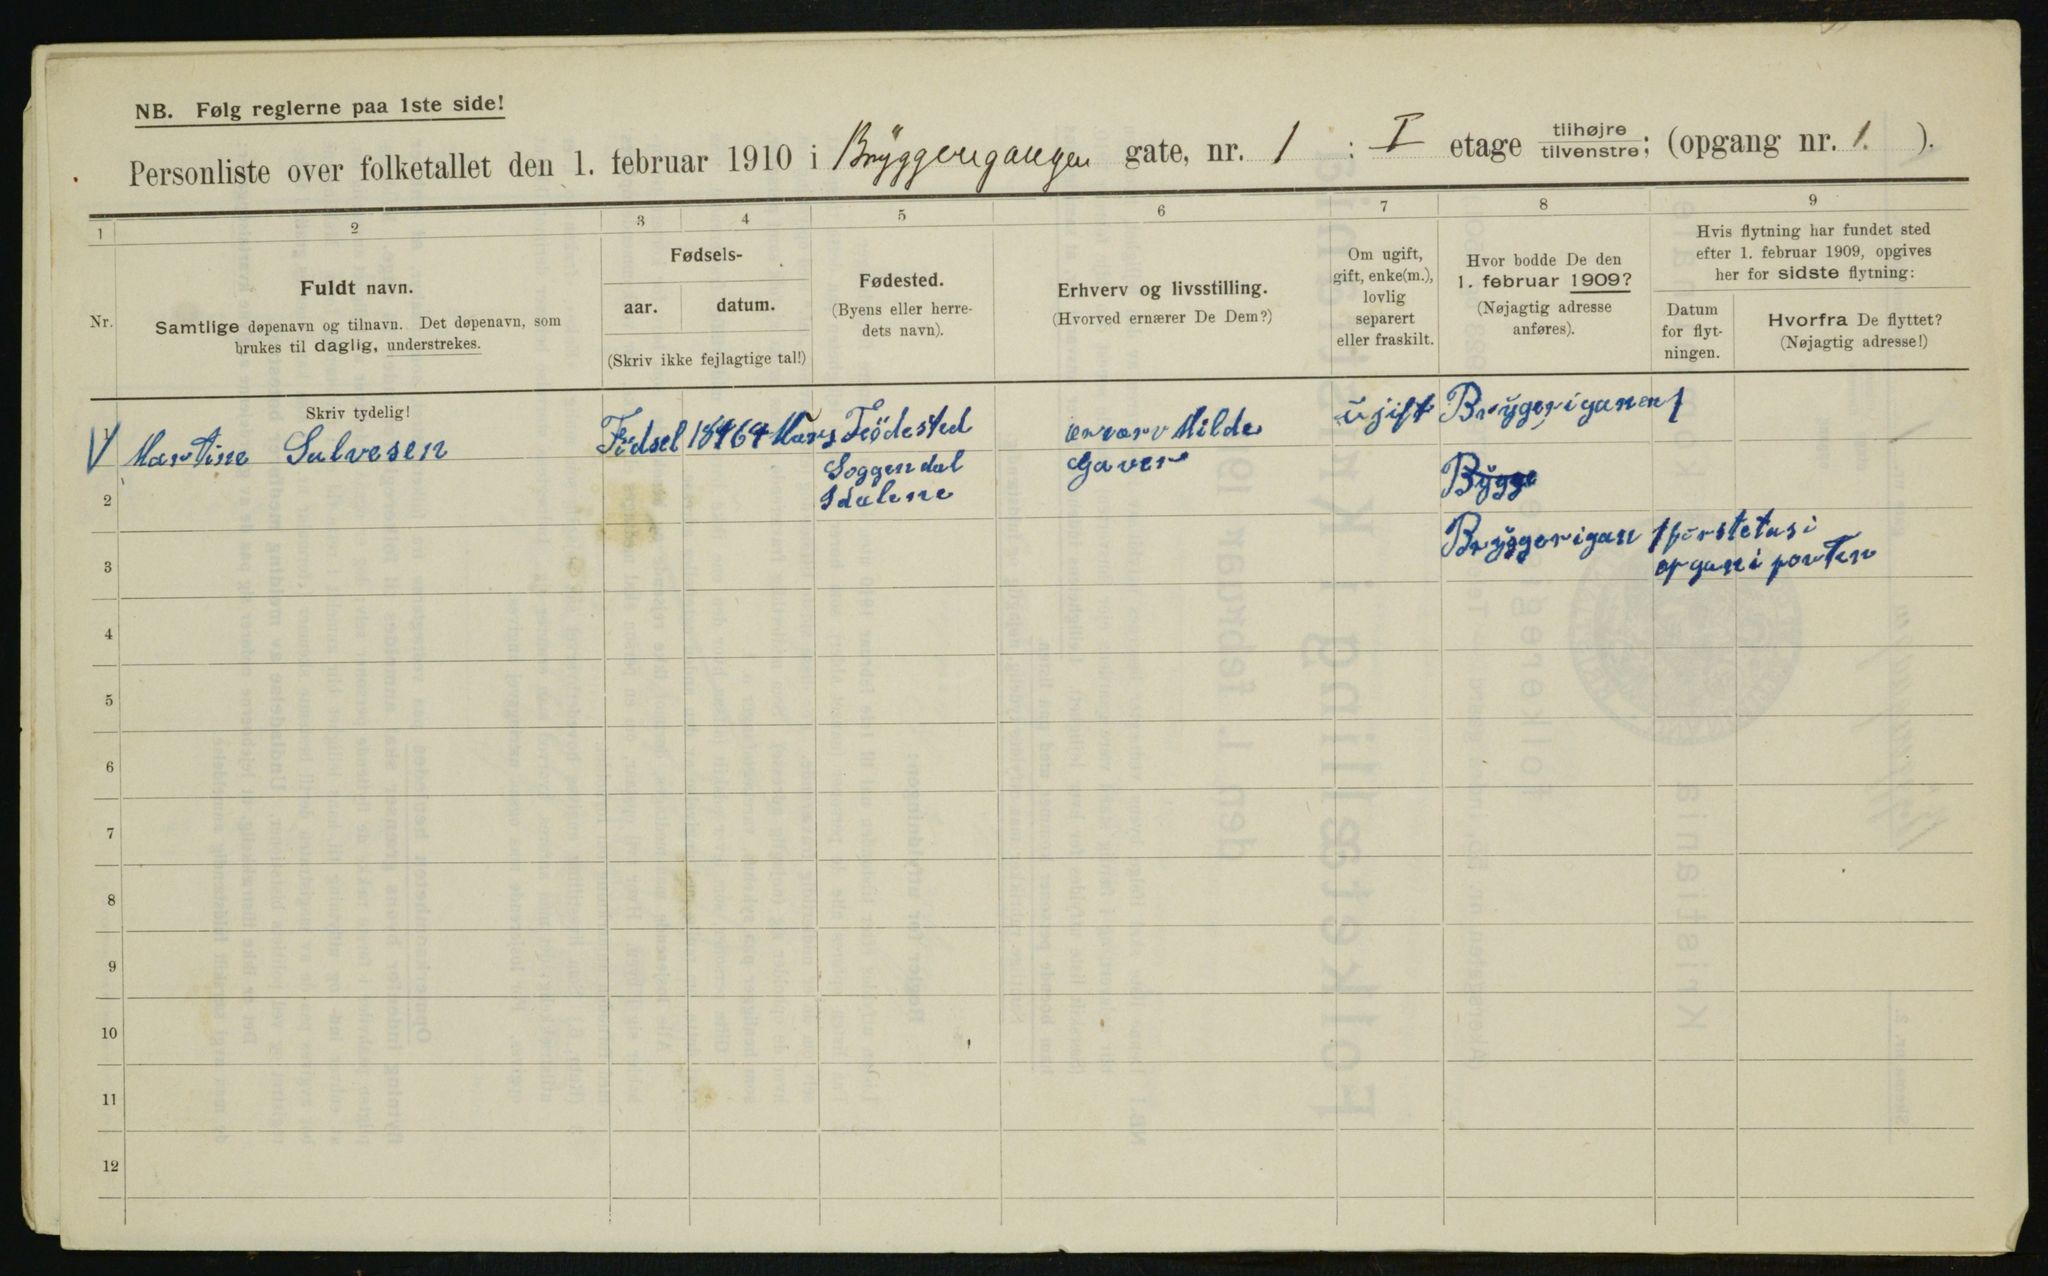 NB. Følg reglerne paa 1ste side!
Personliste over folketallet den 1. februar 1910 i Bryggerigangen gate, nr. 1 : I etage tilhøjre tilvenstre; (opgang nr. 1. ).
1 2 3 4 5 6 7 8 9
Nr.
Fuldt navn.
Samtlige døpenavn og tilnavn. Det døpenavn, som
brukes til daglig, understrekes.
Fødsels-
aar. datum.
(Skriv ikke fejlagtige tal!)
Fødested.
(Byens eller herre-
dets navn).
Erhverv og livsstilling.
(Hvorved ernærer De Dem?)
Om ugift,
gift, enke(m.),
lovlig
separert
eller fraskilt.
Hvor bodde De den
1. februar 1909?
(Nøjagtig adresse
anføres).
Hvis flytning har fundet sted
efter 1. februar 1909, opgives
her for sidste flytning:
Datum
for flyt-
ningen.
Hvorfra De flyttet?
(Nøjagtig adresse!)
Skriv tydelig!
1 Martine Salvesen Fødsel Mars Födested Milde ugift Bryggeriganen 1
Soggendal Gaver
2 Idalene Bygge
3 Bryggerigan 1 förstetasi
opgan i porten
4
5
6
7
8
9
10
11
12